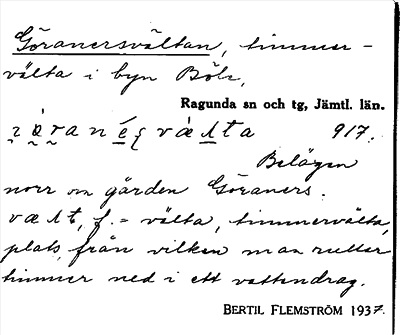 Göranersvältan, timmer-
välta i byn Böle,
Ragunda sn och tg, Jämtl. län.
917.
Belägen
norr om gården Göraners.
væʌt, f. = välta, timmervälta,
plats, från vilken man rullar
timmer ned i ett vattendrag.
BERTIL FLEMSTRÖM 1937.